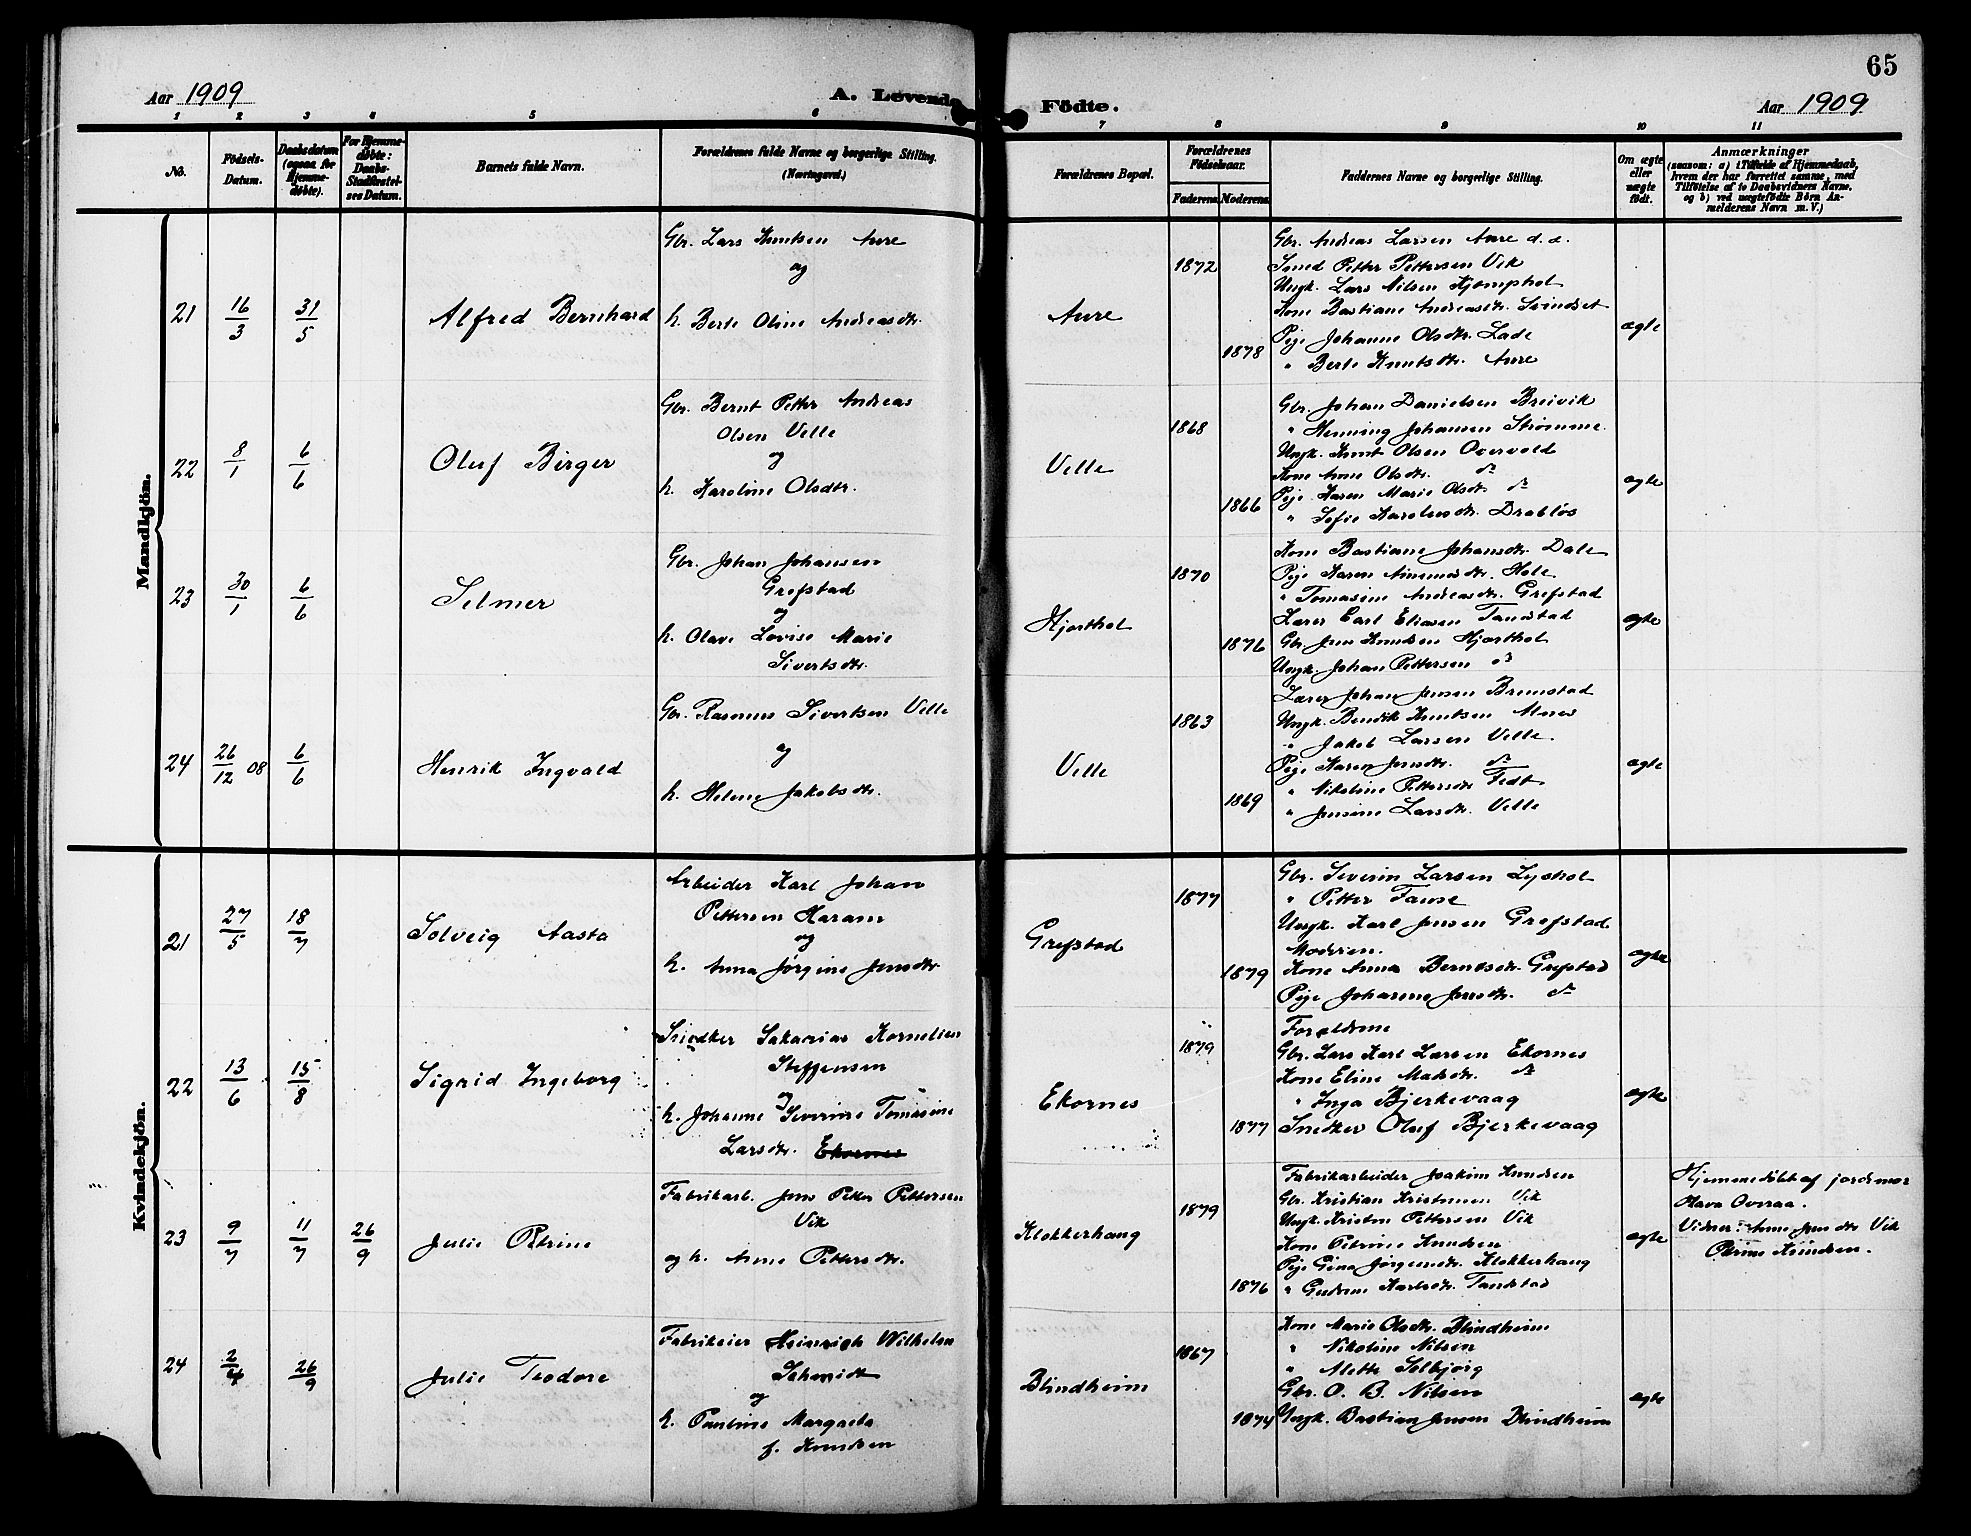 65
Aar 1909
A. Levende Födte.
Aar 1909
1 2 3 4 5 6 7 8 9 10 11
No.
Födsels-Datum.
Daabsdatum (ogsaa for Hjemmedøbte).
For Hjemmedøbte: Daabs-Stadfæstelses Datum.
Barnets fulde Navn.
Forældrenes fulde Navne og borgerlige Stilling.
(Næringsvei.)
Forældrenes Bopæl.
Forældrenes Fødselsaar.
Faderens Moderens
Faddernes Navne og borgerlige Stilling.
Om ægte eller uægte født.
Anmærkninger
(saasom: a) i Tilfælde af Hjemmedaab,
hvem der har forrettet samme, med
Tilføielse af to Daabsvidners Navne,
og b) ved uægtefødte Börn Anmelderens Navn m. V.)
Mandkjön.
21 16/3 31/5 Alfred Bernhard
Gbr. Lars Knutsen Aure
og
h. Berte Oline Andreasdtr.
Aure
1872
1878
Gbr. Andreas Larsen Aure d.e.
Smed Petter Pettersen Vik
Ungk. Lars Nilsen Kjemphol
Kone Bastiane Andreasdtr. Svindset
Pige Johanne Olsdtr. Lade
" Berte Knutsdtr. Aure
ægte
22 8/1 6/6 Oluf Birger
Gbr. Bernt Petter Andreas
Olsen Velle
og
h. Karoline Olsdtr.
Velle
1868
1866
Gbr. Johan Danielsen Breivik
" Henning Johansen Strømme
Ungk. Knut Olsen Overvold
Kone Anne Olsdtr. do
Pige Karen Marie Olsdtr. do
" Sofie Karolusdtr. Drabløs
ægte
23 30/1 6/6 Selmer
Gbr. Johan Johansen
Grefstad
og
h. Olave Lovise Marie
Sivertsdtr.
Hjorthol
1870
1876
Kone Bastiane Johansdtr. Dale
Pige Karen Hole
" Tomasine Andreasdtr. Grefstad
Lærer Carl Eliasen Tandstad
Gbr. Jens Knudsen Hjorthol
Ungk. Johan Pettersen do
ægte
24 26/12 08 6/6 Henrik Ingvald
Gbr. Rasmus Sivertsen Velle
og
h. Helene Jakobsdtr.
Velle
1863
1869
Lærer Johan Jensen Brunstad
Ungk. Bendik Knutsen Alnes
" Jakob Larsen Velle.
Pige Karen Jensdtr. do
" Nikoline Pettersdtr. Tedt
" Jensine Larsdtr. Velle
ægte
Kvindekjön.
21 27/5 18/7 Solveig Aasta
Arbeider Karl Johan
Pettersen Haram
og
h. Anna Jørgine Jensdtr.
Grefstad
1877
1879
Gbr. Severin Larsen Lyshol
" Petter Tause
Ungk. Karl Jensen Grefstad
Moderen.
Kone Anna Berntsdtr. Grefstad
Pige Johanne Jensdtr. do
ægte
22 13/6 15/8 Sigrid Ingeborg
Snedker Sakarias Kornelius
Steffensen
og
h. Johanne Severine Tomasine
Larsdtr. Ekornes
Ekornes
1879
1877
Forældrene
Gbr. Lars Karl Larsen Ekornes
Kone Eline Maksdtr. do
" Inga Bjerkevaag
Snedker Oluf Bjerkevaag
ægte
23 9/7 11/7 26/9 Julie Petrine
Fabrikarb. Jens Petter Pettersen
Vik
og h. Anne Pettersdtr.
Klokkerhaug
1879
1876
Fabrikarbeider Joakim Knudsen
Gbr. Kristian Kristensen Vik
Ungk. Kristen Pettersen Vik
Kone Petrine Knudsen
Pige Gina Jørgensdtr. Klokkerhaug
" Gudrun Karlsdtr. Tandstad
ægte
Hjemmedøbt af jordemor
Olava Overaa.
Vidner: Anne Jensdtr. Vik
Petrine Knudsen.
24 2/4 26/9 Julie Teodore
Fabrikeier Heinrich Wilhelm
Schmidt
og
h. Pauline Margrete
f. Knudsen
Blindheim
1867
1874
Kone Marie Olsdtr. Blindheim
" Nikoline Nilsen
" Alette Solbjørg
Gbr. O. B. Nilsen
Ungk. Bastian Jensen Blindheim
ægte